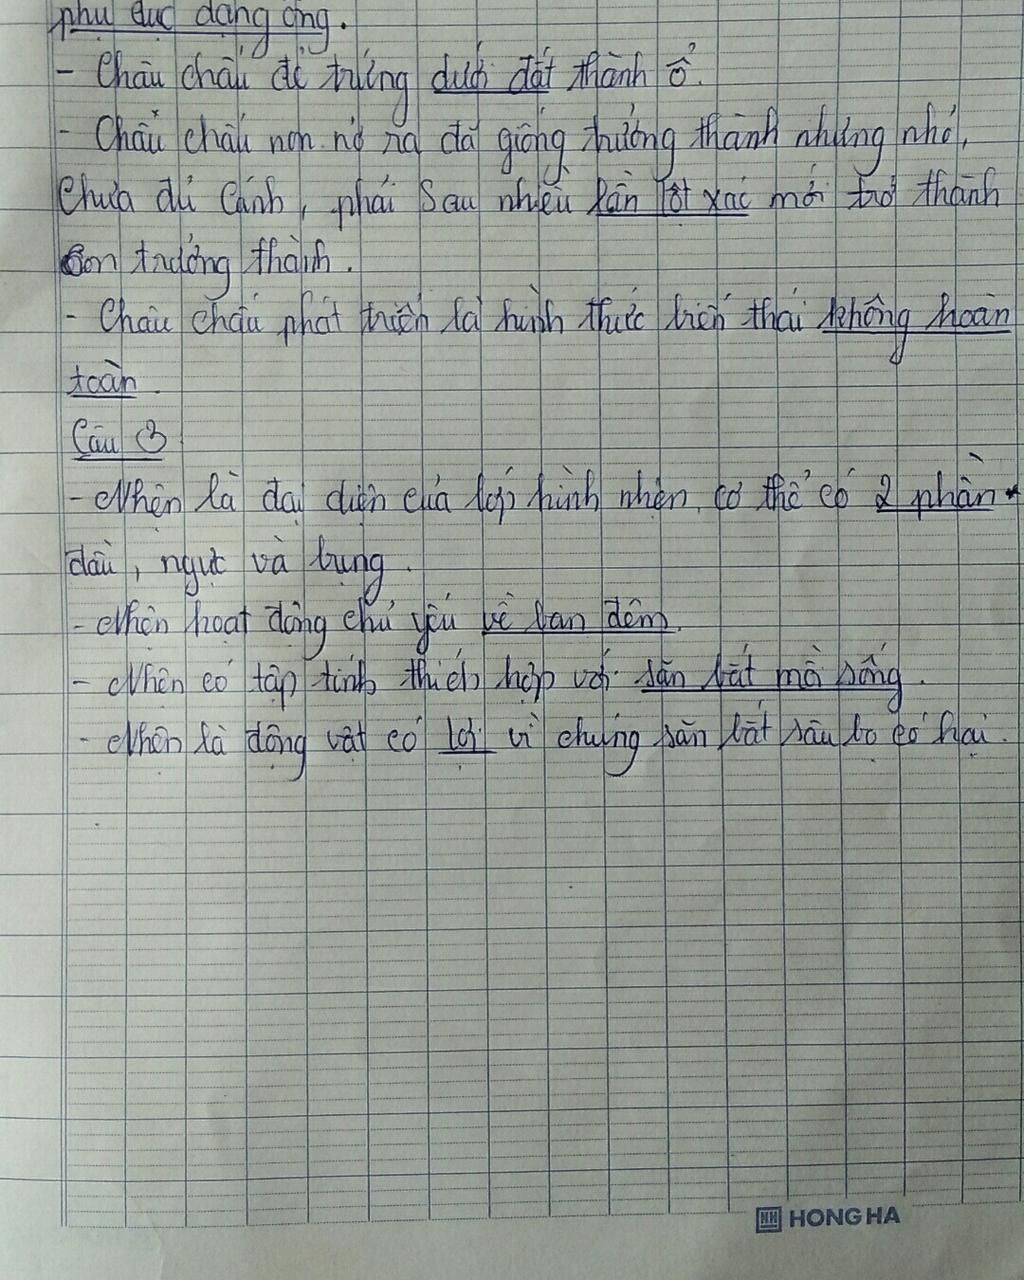 phụ dục dạng ống.
- Châu chấu đẻ trứng dưới đất thành ổ.
- Chấu chấu non nở ra đã giống trưởng thành nhưng nhỏ,
Chưa đủ Cánh, phải Sau nhiều lần lột xác mới trở thành
con trưởng thành.
- Châu chấu phát triển là hình thức biến thái không hoàn
toàn.
Câu 3
- Nhện là đại diện của lớp hình nhện, cơ thể có 2 phần
đầu, ngực và bụng.
- Nhện hoạt động chủ yếu về ban đêm.
- Nhện có tập tính thích hợp với săn bắt mồi sống.
- Nhện là động vật có lợi vì chúng săn bắt sâu bọ có hại.
HONG HA